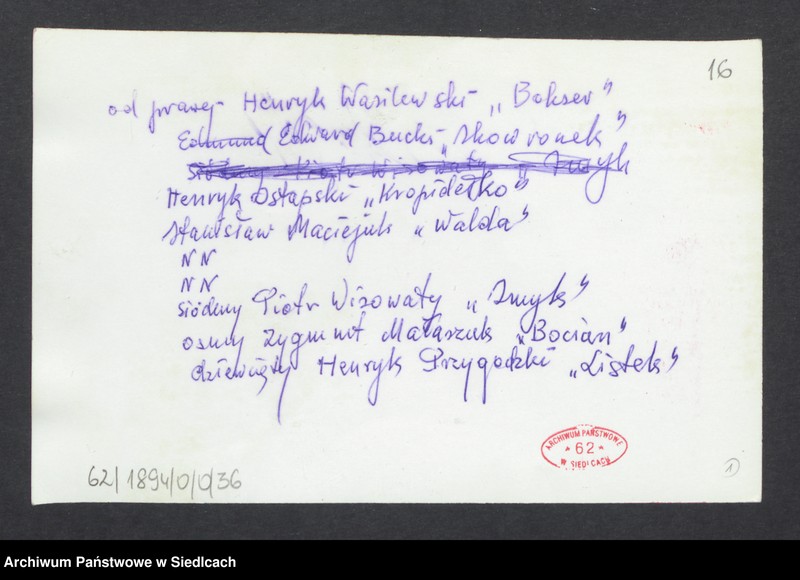 16
od prawej Henryk Wasilewski „Bokser”
Edmund Edward Bucki „Skowronek”
siódmy Piotr Wisowaty „Smyk
Henryk Ostapski „Kropidełko”
Stanisław Maciejuk „Walda”
NN
NN
siódmy Piotr Wisowaty „Smyk”
osmy Zygmunt Mataszuk „Bocian”
dziewiąty Henryk Przygodzki „Listek”
ARCHIWUM PAŃSTWOWE
* 62 *
W SIEDLCACH
62/1894/0/0/36
1
Archiwum Państwowe w Siedlcach